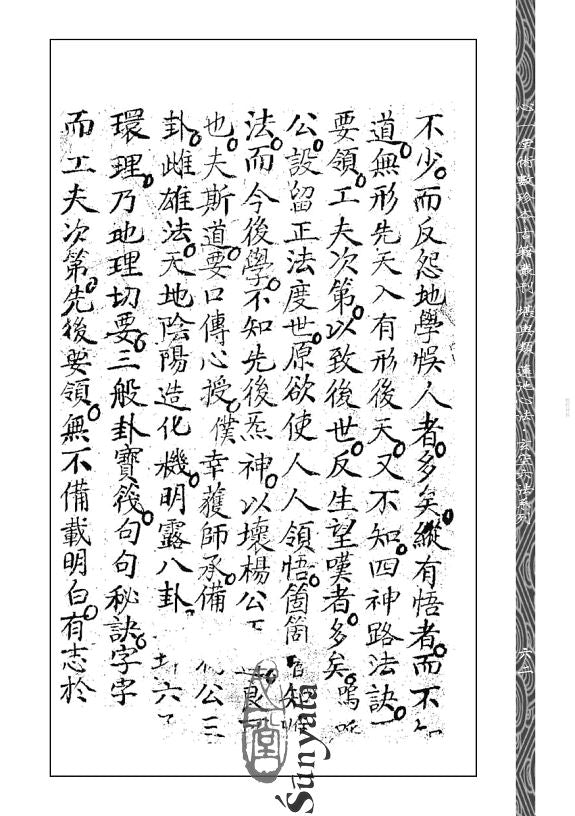 不少。而反怨地學悞人者。多矣。縱有悟者。而不知
道。無形先天入有形後天。又不知。四神路法訣。
要領。工夫次第。以致後世。反生望嘆者。多矣。嗚呼
公。設留正法度世。原欲使人人領悟。箇箇
法。而今後學。不知先後炁神。以壞楊公
也。夫斯道。要口傳心授。僕幸獲師承。備 公三
卦。雌雄法。天地陰陽造化機。明露八卦。 六
環理。乃地理切要。三般卦寶筏。句句秘訣。字字
而工夫次第。先後要領。無不備載明白。有志於
心一堂術數珍本古籍叢刊 堪輿類 蓮池心法 玄空六法系列
六
心一堂
Śūnyatā